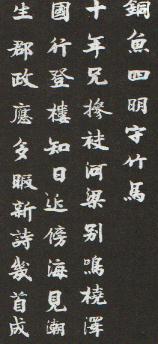 銅魚四明字竹馬
十年兄摻袪河梁別鳴橈澤
國行登樓知日近傍海見潮
生郡政應多暇新詩幾首成